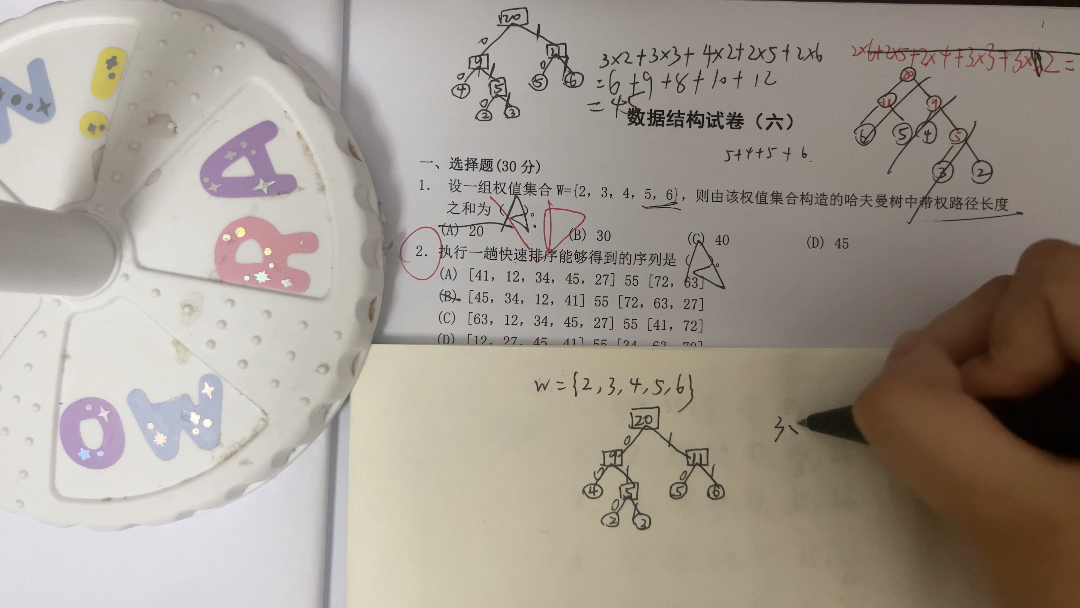 20
9
11
4
5
5
6
2
3
3×2+3×3+4×2+2×5+2×6
=6+9+8+10+12
=45
2×6+2×5+2×4+3×3+3×2=
20
11
9
6
5
4
5
3
2
数据结构试卷（六）
5+4+5+6
一、选择题(30分)
1. 设一组权值集合 W={2, 3, 4, 5, 6}, 则由该权值集合构造的哈夫曼树中带权路径长度
之和为（ ）。
(A) 20 (B) 30 (C) 40 (D) 45
2. 执行一趟快速排序能够得到的序列是（ ）。
(A) [41, 12, 34, 45, 27] 55 [72, 63]
(B) [45, 34, 12, 41] 55 [72, 63, 27]
(C) [63, 12, 34, 45, 27] 55 [41, 72]
(D) [12, 27, 45, 41] 55 [34, 63, 72]
W={2,3,4,5,6}
20
0 1
9 11
0 1 0 1
4 5 5 6
0 1
2 3
3
W
!
A
R
O
M